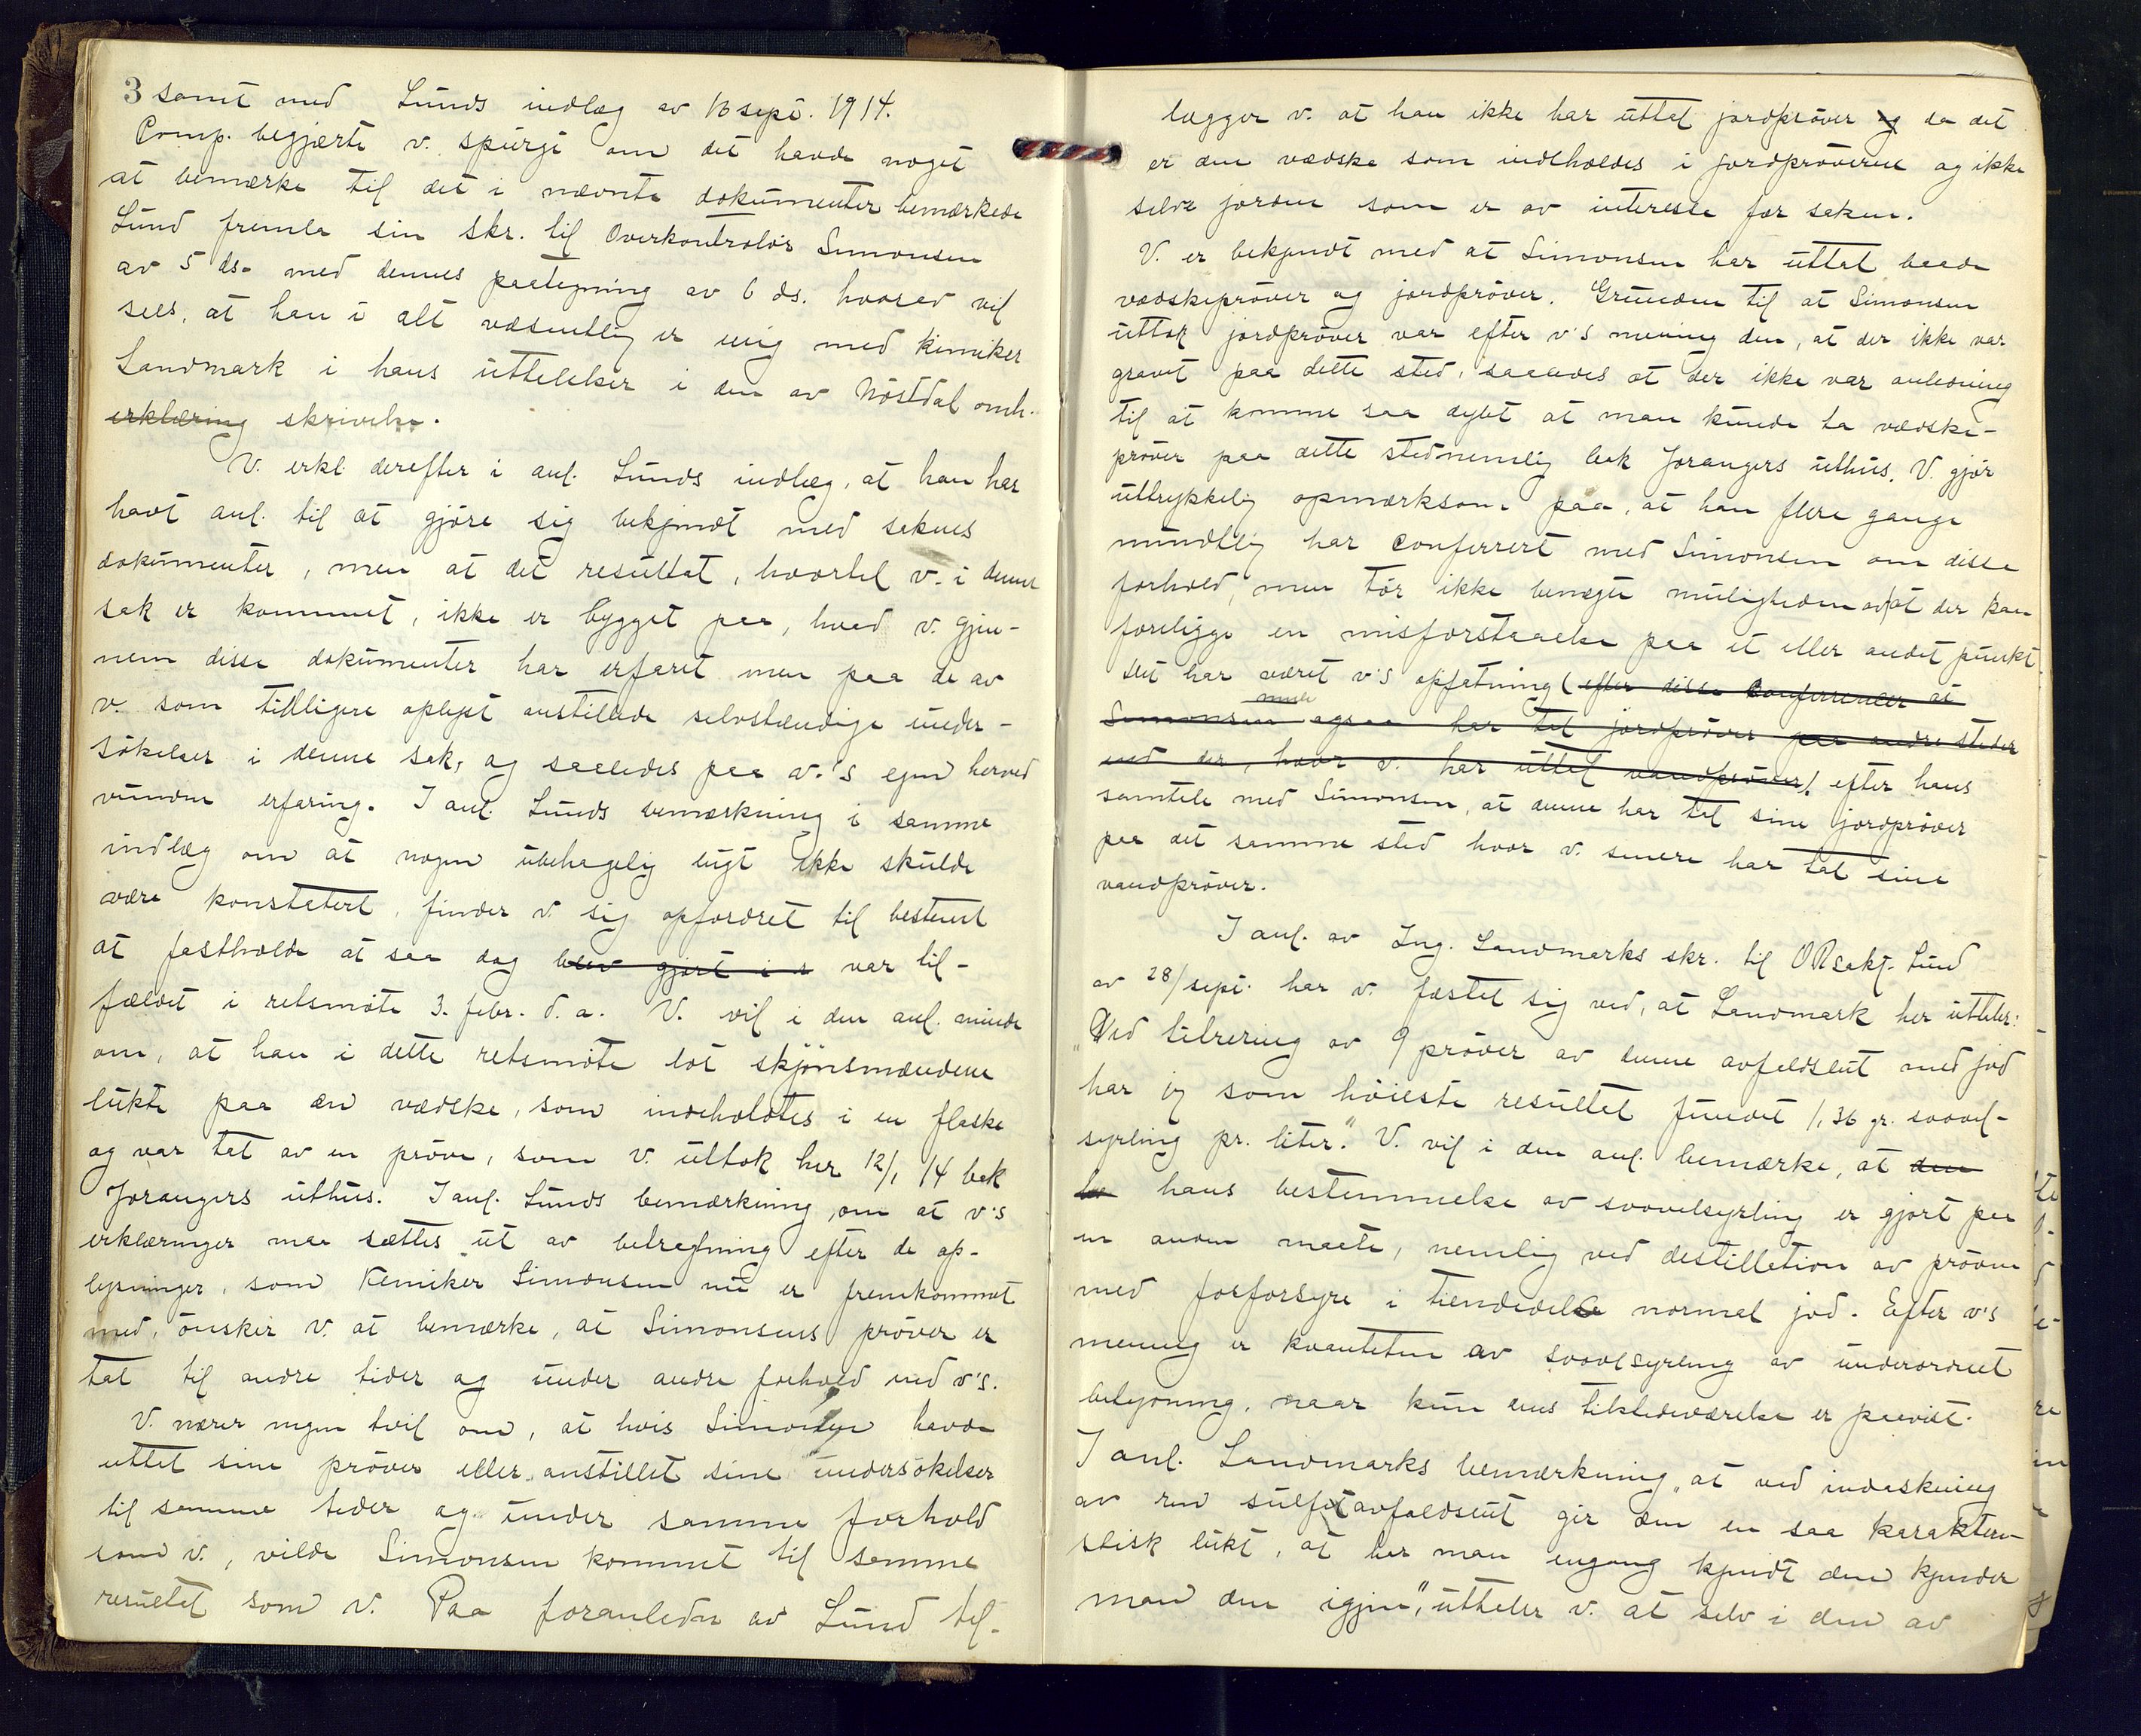 3 samt med Lunds indlæg av 16 sept. 1914.
Comp. begjærte v. spurgt om det havde noget
at bemærke til det i nævnte dokumenter bemærkede
Lund fremla sin skr. til Overkontrolør Simonsen
av 5 ds. med dennes paategning av 6 ds. hvorav vil
sees, at han i alt væsentlig er enig med kemiker
Landmark i hans uttalelser i den av Nøstdal omh.
erklæring skrivelse.
V. erkl. derefter i anl. Lunds indlæg, at han har
havt anl. til at gjøre sig bekjendt med sakens
dokumenter, men at det resultat, hvortil v. i denne
sak er kommet, ikke er bygget paa, hvad v. gjen-
nem disse dokumenter har erfaret men paa de av
v. som tidligere oplyst anstillede selvstændige under-
søkelser i denne sak, og saaledes paa v.'s egen herved
vundne erfaring. I anl. Lunds bemærkning i samme
indlæg om at nogen ubehagelig lugt ikke skulde
være konstatert, finder v. sig opfordret til bestemt
at fastholde at saa dog blev gjort i r var til-
fældet i retsmøte 3. febr. d. a. V. vil i den anl. minde
om, at han i dette retsmøte lot skjønsmændene
lukte paa en vædske, som indeholdtes i en flaske
og var tat av en prøve, som v. uttok her 12/1 14 bak
Jorangers uthus. I anl. Lunds bemærkning, om at v's
erklæringer maa sættes ut av betragtning efter de op-
lysninger, som Kemiker Simonsen nu er fremkommet
med, ønsker v. at bemærke, at Simonsens prøver er
tat til andre tider og under andre forhold end v's.
V. nærer ingen tvil om, at hvis Simonsen havde
uttat sine prøver eller anstillet sine undersøkelser
til samme tider og under samme forhold
som v., vilde Simonsen kommet til samme
resultat som v. Paa foranledn av Lund til-
lægger v. at han ikke har uttat jordprøver og da det
er den vædske som indeholdes i jordprøverne og ikke
selve jorden som er av interesse for saken.
V. er bekjendt med at Simonsen har uttat baade
vædskeprøver og jordprøver. Grunden til at Simonsen
uttok jordprøver var efter v's mening den, at der ikke var
gravet paa dette sted, saaledes at der ikke var anledning
til at komme saa dypt at man kunde ta vædske-
prøver paa dette sted nemlig bak Jorangers uthus. V. gjør
uttrykkelig opmærksom paa, at han flere gange
mundtlig har conferrert med Simonsen om disse
forhold, men tør ikke benegte muligheden av at der kan
foreligge en misforstaaelse paa et eller andet punkt
det har været v's opfatning (efter disse conferencer at
Simonsen ogsaa har tat jordprøver paa andre steder
end der, hvor v. har uttat vandprøver). efter hans
samtale med Simonsen, at denne har tat sine jordprøver
paa det samme sted hvor v. senere har tat sine
vandprøver.
I anl. av Ing. Landmarks skr. til ORsakf. Lund
av 28/sept. har v. fæstet sig ved, at Landmark her uttaler:
"Ved titrering av 9 prøver av denne avfaldslut med jod
har jeg som høieste resultat fundet 1,36 gr. svovel-
syrling pr. liter." V. vil i den anl. bemærke, at den
ha hans bestemmelse av svovelsyrling er gjort paa
en anden maate, nemlig ved destillation av prøven
med fosforsyre i tiendedels normal jod. Efter v's
mening er kvantiteten av svovlsyrling av underordnet
betydning, naar kun dens tilstedeværelse er paavist.
I anl. Landmarks bemærkning "at ved indaskning
av ren sulfitavfaldslut gir den en saa karakteri-
stisk lukt, at har man engang kjendt den kjender
man den igjen", uttaler v. at selv i den av